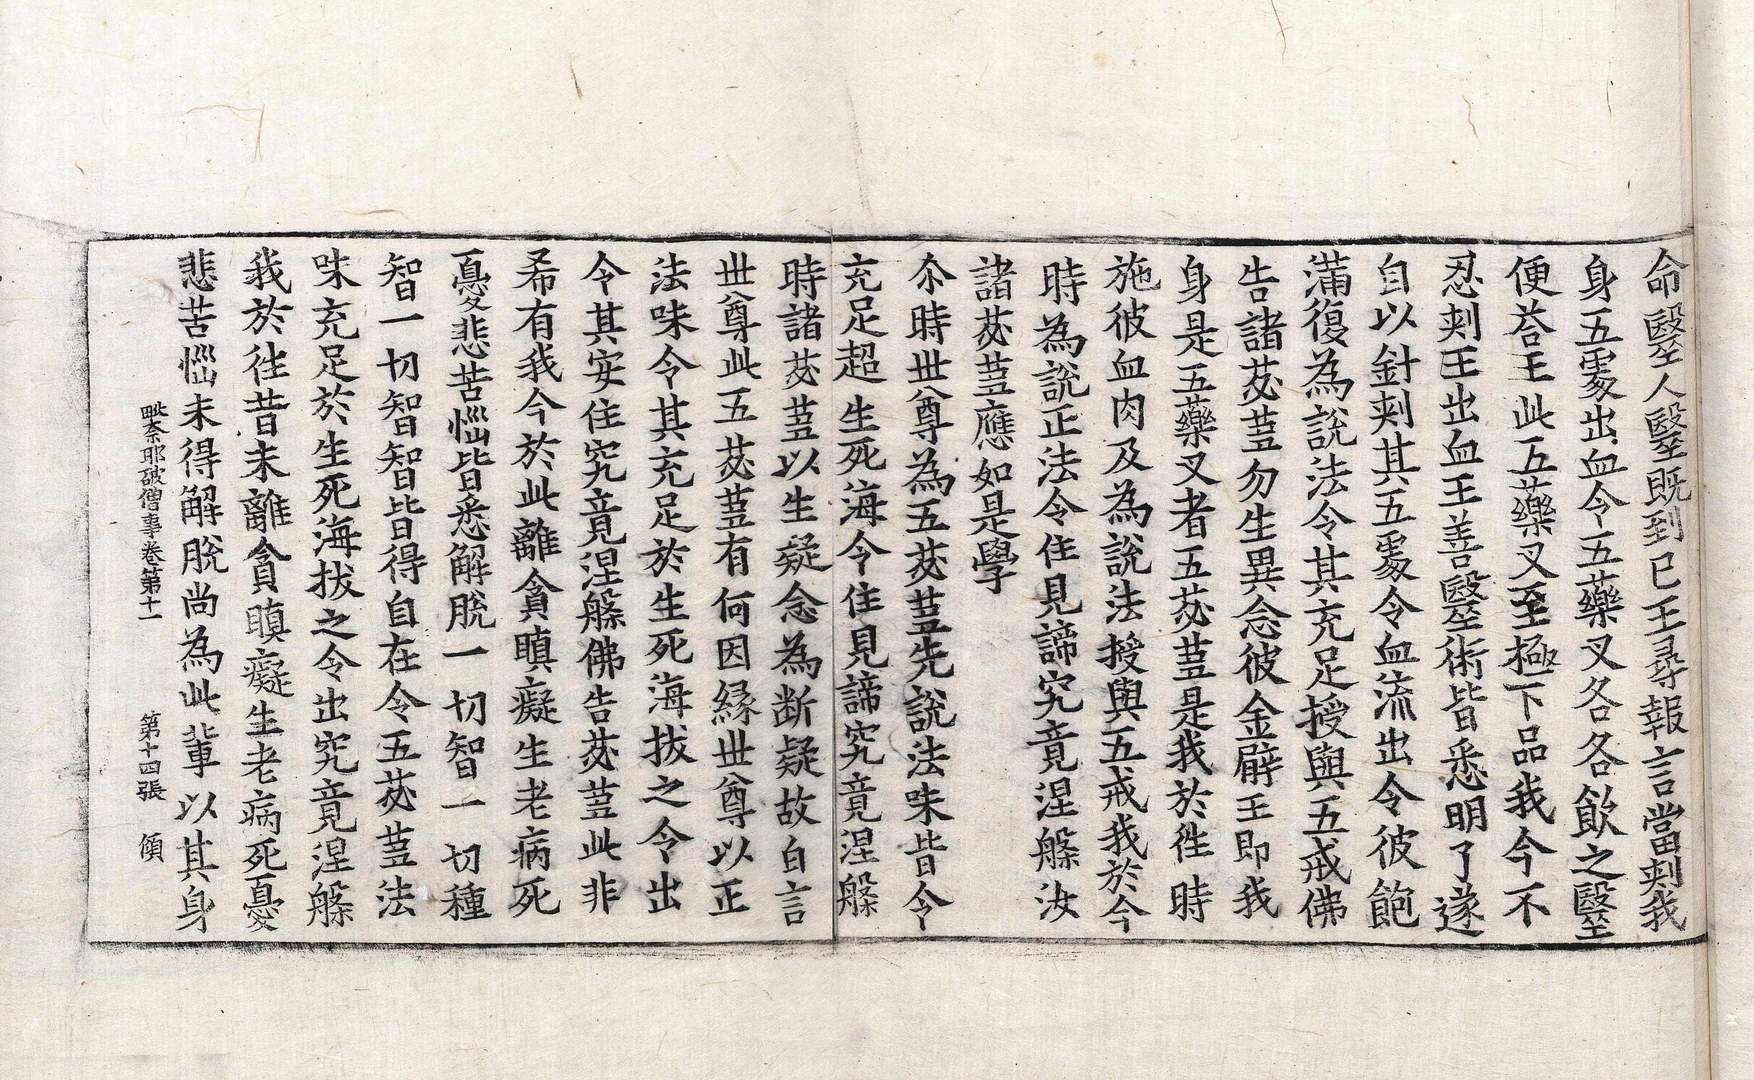 命毉人毉既到已王尋報言當刾我
身五䖏出血令五藥叉各各飲之毉
便荅王此五藥叉至極下品我今不
忍刾王出血王善毉術皆悉明了遂
自以針刾其五䖏令血流出令彼飽
滿復為說法令其充足授與五戒佛
告諸苾蒭勿生異念彼金臂王即我
身是五藥叉者五苾蒭是我於徃時
施彼血肉及為說法授與五戒我於今
時為說正法令住見諦究竟涅槃汝
諸苾蒭應如是學
尒時世尊為五苾蒭先說法味皆令
充足超生死海令住見諦究竟涅槃
時諸苾蒭以生疑念為断疑故白言
世尊此五苾蒭有何因縁世尊以正
法味令其充足於生死海拔之令出
令其安住究竟涅槃佛告苾蒭此非
希有我今於此離貪瞋癡生老病死
憂悲苦惱皆悉解脫一切智一切種
智一切智智皆得自在令五苾蒭法
味充足於生死海拔之令出究竟涅槃
我於徃昔未離貪瞋癡生老病死憂
悲苦惱未得解脫尚為此軰以其身
毗奈耶破僧事卷第十一　第十四張　傾